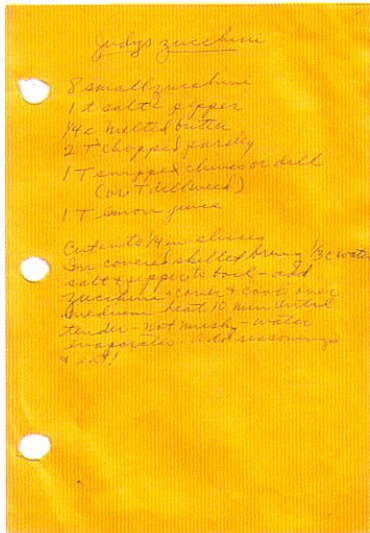 Judys zucchini
8 small zucchini
1 t salt & pepper
1/4 c melted butter
2 T chopped parsley
1 T snipped chives or dill
(or T dillweed)
1 T lemon juice
Cut into 1/4 in slices
In covered skillet bring 1/3 c water
salt & pepper to boil - add
zucchini, cover & cook over
medium heat 10 min until
tender - not mushy - water
evaporates. Add seasonings
& eat!